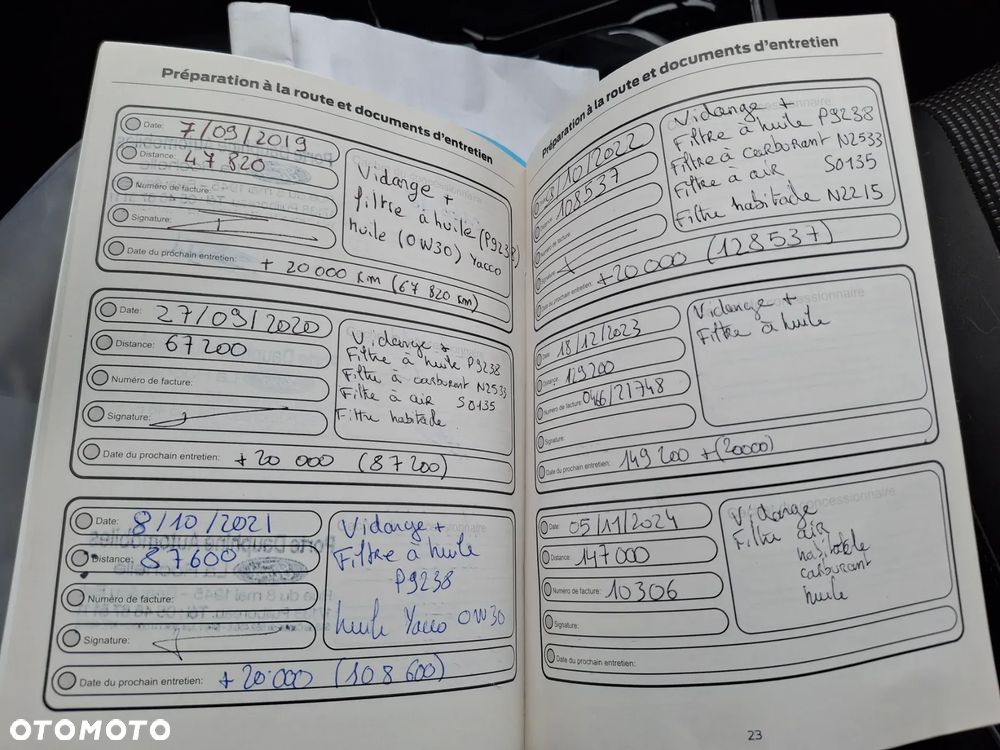 Préparation à la route et documents d'entretien
Date: 7/09/2019
Distance: 47 820
Numéro de facture:
Signature:
Vidange +
filtre à huile (P9238)
huile (0W30) Yacco
Date du prochain entretien: + 20 000 km (67 820 km)
Date: 27/09/2020
Distance: 67 200
Numéro de facture:
Signature:
Vidange +
Filtre à huile P9238
Filtre à carburant N2533
Filtre à air S0135
Filtre habitacle
Date du prochain entretien: + 20 000 (87 200)
Date: 8/10/2021
Distance: 87600
Numéro de facture:
Signature:
Vidange +
Filtre à huile
P9238
huile Yacco 0W30
Date du prochain entretien: + 20.000 (108 600)
Préparation à la route et documents d'entretien
/10/2022
Distance: 108537
Numéro de facture:
Signature:
Vidange +
Filtre à huile P9238
Filtre à carburant N2533
Filtre à air S0135
Filtre habitacle N2215
Date du prochain entretien: +20000 (128537)
Date: 18/12/2023
Distance: 129200
Numéro de facture: 0466/21748
Signature:
Vidange +
Filtre à huile
Date du prochain entretien: 149 200 +(20000)
Date: 05/11/2024
Distance: 147000
Numéro de facture: 10306
Signature:
Vidange
Filtre air
habitacle
carburant
huile
Date du prochain entretien:
23
OTOMOTO